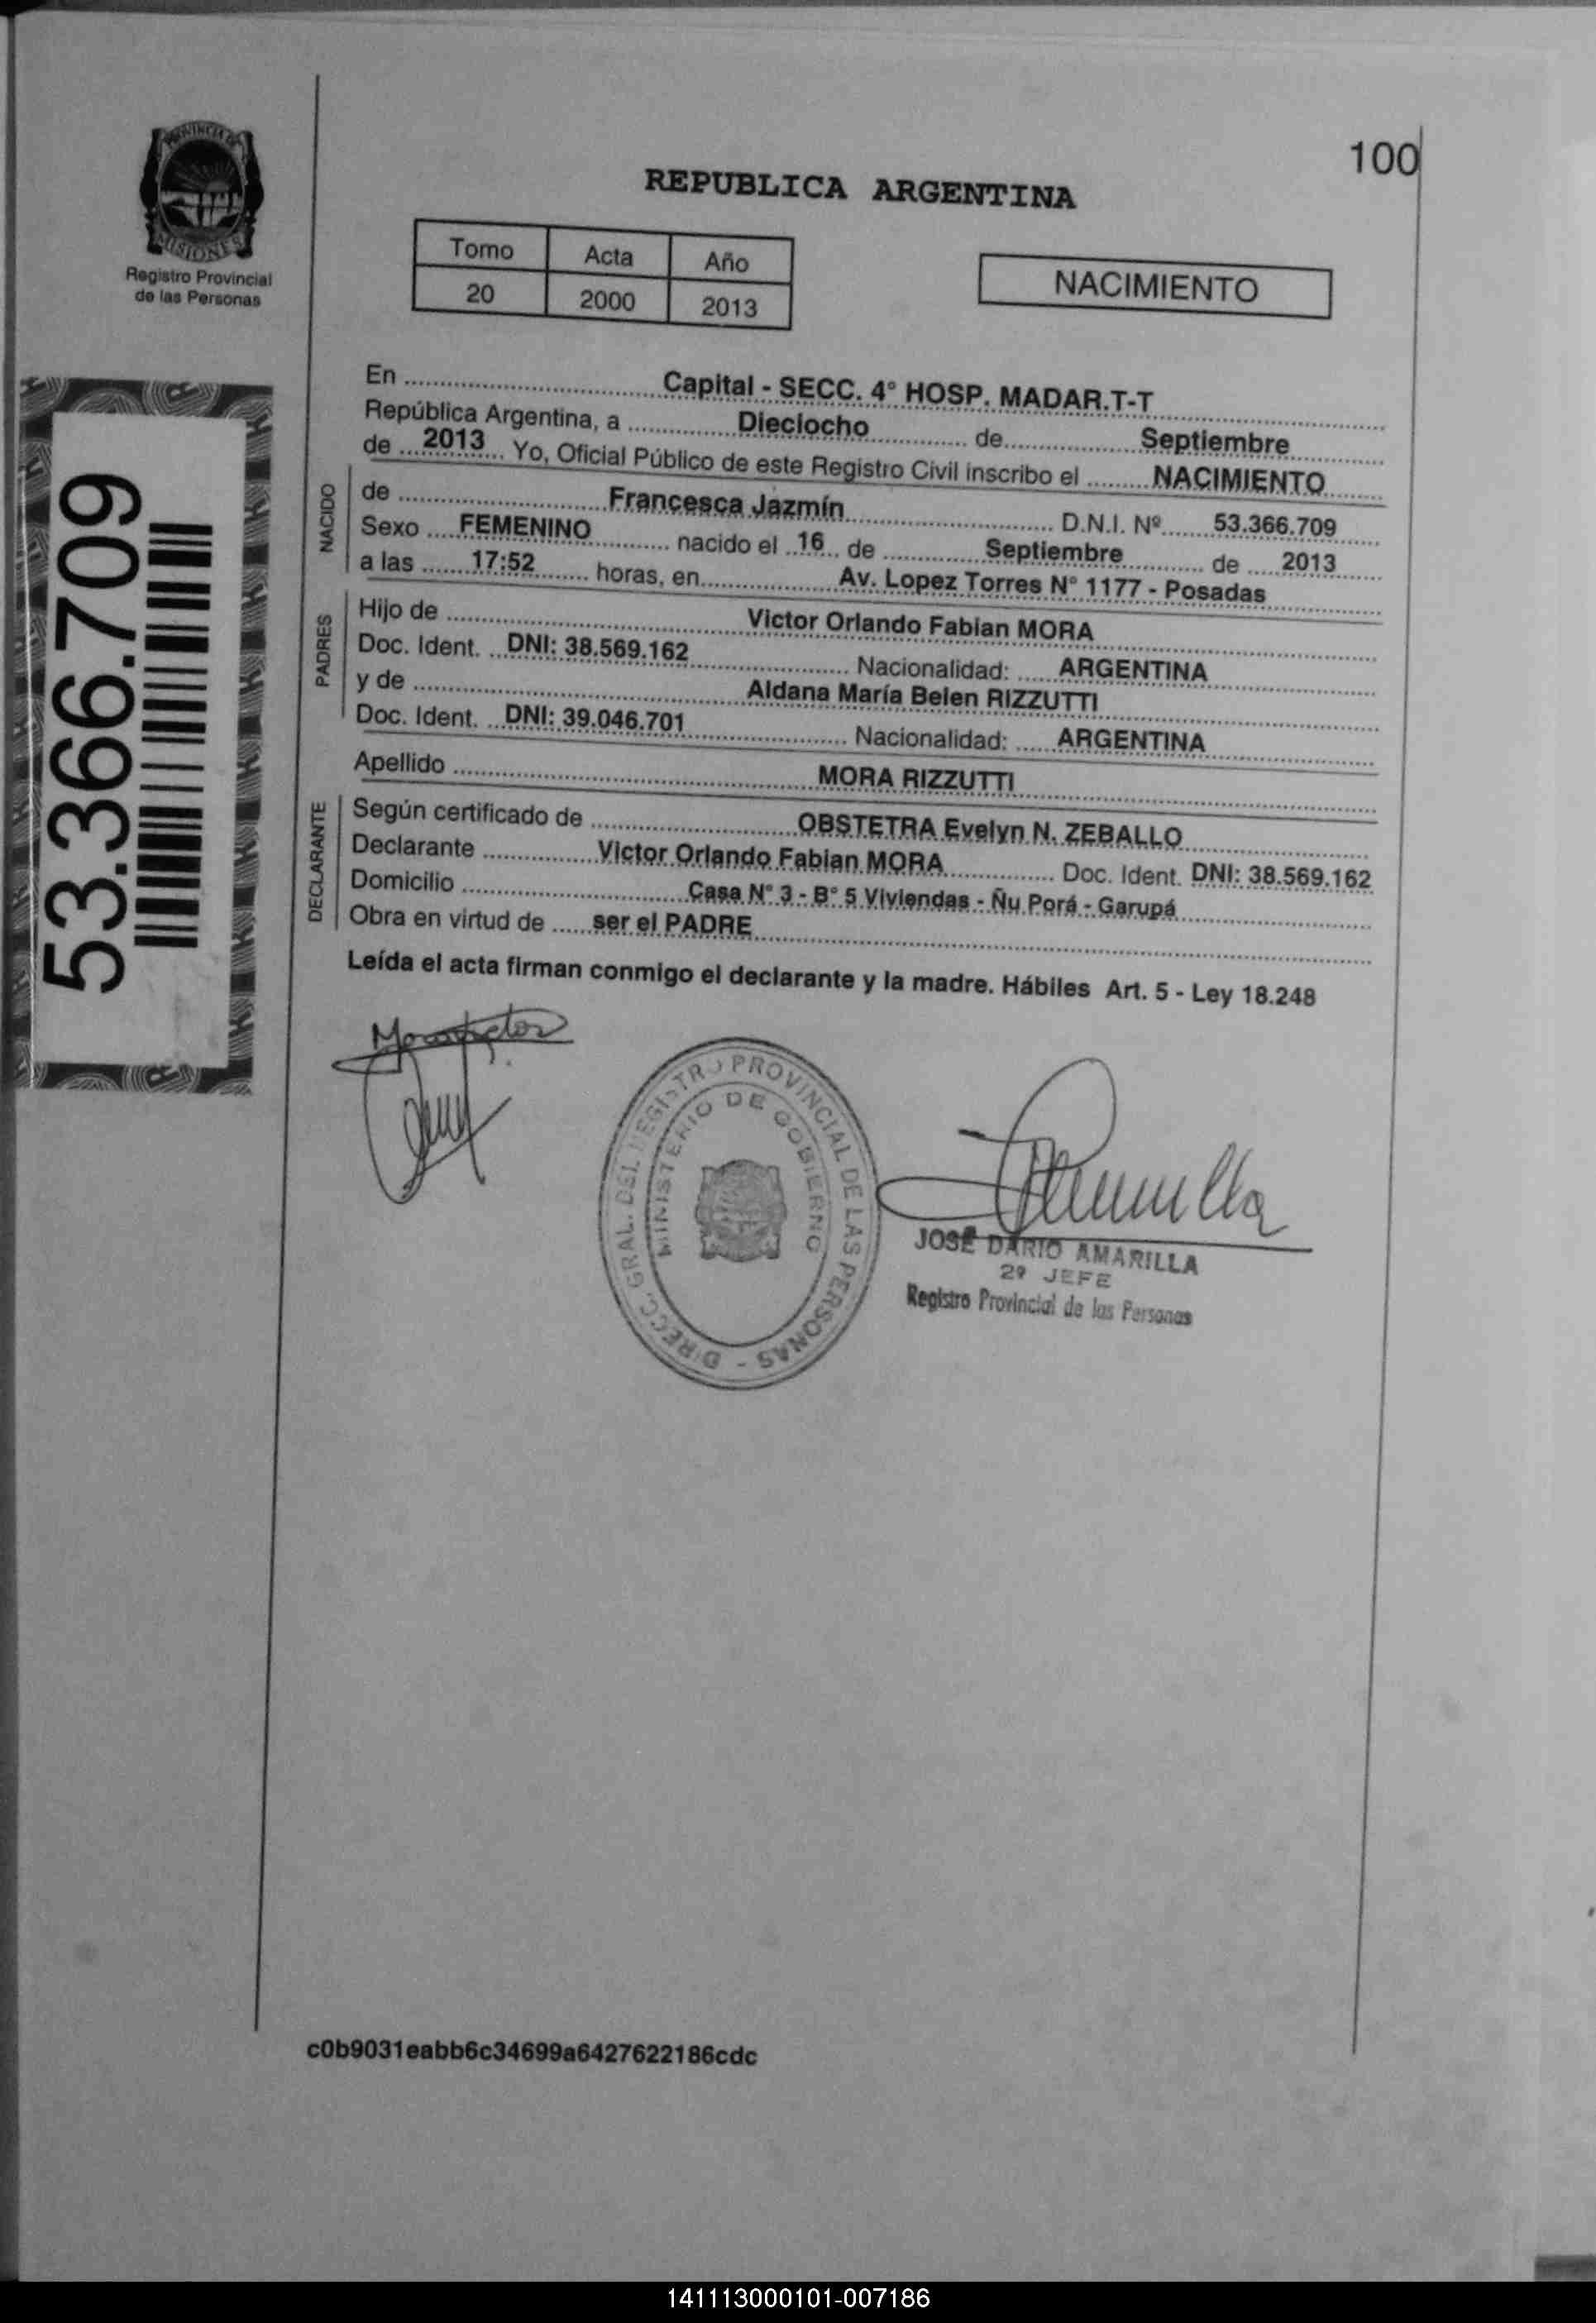 100
PROVINCIA DE
MISIONES
Registro Provincial
de las Personas
REPUBLICA ARGENTINA
Tomo Acta Año
20 2000 2013
NACIMIENTO
53.366.709
En Capital - SECC. 4° HOSP. MADAR.T-T
República Argentina, a Dieciocho de Septiembre
de 2013 Yo, Oficial Público de este Registro Civil inscribo el NACIMIENTO
NACIDO
de Francesca Jazmín D.N.I. Nº 53.366.709
Sexo FEMENINO nacido el 16 de Septiembre de 2013
a las 17:52 horas, en Av. Lopez Torres N° 1177 - Posadas
PADRES
Hijo de Victor Orlando Fabian MORA
Doc. Ident. DNI: 38.569.162 Nacionalidad: ARGENTINA
y de Aldana María Belen RIZZUTTI
Doc. Ident. DNI: 39.046.701 Nacionalidad: ARGENTINA
Apellido MORA RIZZUTTI
DECLARANTE
Según certificado de OBSTETRA Evelyn N. ZEBALLO
Declarante Victor Orlando Fabian MORA Doc. Ident. DNI: 38.569.162
Domicilio Casa N° 3 - B° 5 Viviendas - Ñu Porá - Garupá
Obra en virtud de ser el PADRE
Leída el acta firman conmigo el declarante y la madre. Hábiles Art. 5 - Ley 18.248
DIRECC. GRAL. DEL REGISTRO PROVINCIAL DE LAS PERSONAS -
MINISTERIO DE GOBIERNO
JOSÉ DARIO AMARILLA
2º JEFE
Registro Provincial de las Personas
c0b9031eabb6c34699a6427622186cdc
141113000101-007186